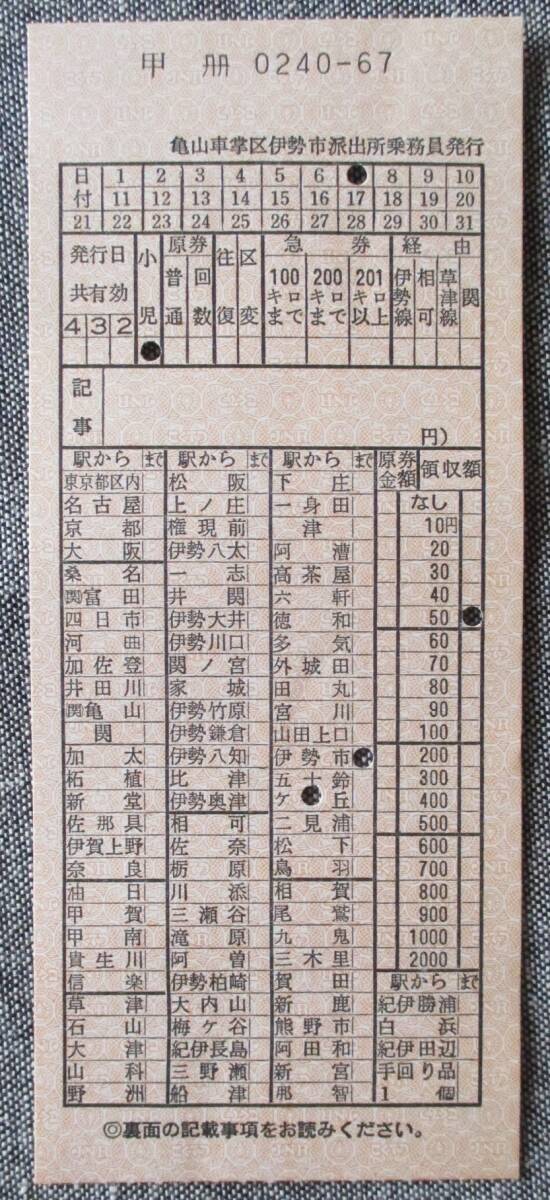 甲 册 0240-67
亀山車掌区伊勢市派出所乗務員発行
日 1 2 3 4 5 6 8 9 10
付 11 12 13 14 15 16 17 18 19 20
21 22 23 24 25 26 27 28 29 30 31
発行日共有効 小児 原券 普通 回数 往復 区変 急券 100キロまで 200キロまで 201キロ以上 経由 伊勢線 相可 草津線 関
432
記事 円)
駅から まで 駅から まで 駅から まで 原券金額 領収額
東京都区内 松阪 下庄 なし
名古屋 上ノ庄 一身田 10円
京都 権現前 津 20
大阪 伊勢八太 阿漕 30
桑名 一志 高茶屋 40
関富田 井関 六軒 50
四日市 伊勢大井 徳和 60
河曲 伊勢川口 多気 70
加佐登 関ノ宮 外城田 80
井田川 家城 田丸 90
関亀山 伊勢竹原 宮川 100
関 伊勢鎌倉 山田上口 200
加太 伊勢八知 伊勢市 300
柘植 比津 五十鈴 400
新堂 伊勢奥津 ケ丘 500
佐那具 相可 二見浦 600
伊賀上野 佐奈 松下 700
奈良 栃原 鳥羽 800
油日 川添 相賀 900
甲賀 三瀬谷 尾鷲 1000
甲南 滝原 九鬼 2000
貴生川 阿曽 三木里 駅から まで
信楽 伊勢柏崎 賀田 紀伊勝浦
草津 大内山 新鹿 白浜
石山 梅ケ谷 熊野市 紀伊田辺
大津 紀伊長島 阿田和 手回り品
山科 三野瀬 新宮 1個
野洲 船津 那智
◎裏面の記載事項をお読みください。